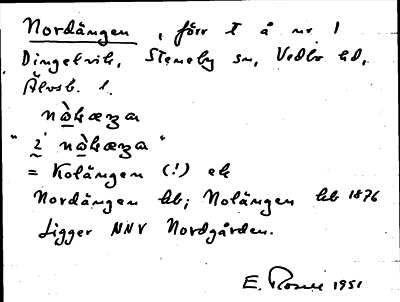 Nordängen, förr t å nr 1
Dingelvik, Steneby sn, Vedbo hd,
Älvsb. l.
nàhæŋa
"i nàhæŋa"
= Kolängen (!) ek
Nordängen kb; Nolängen kb 1876
Ligger NNV Nordgården.
E. Rosell 1951